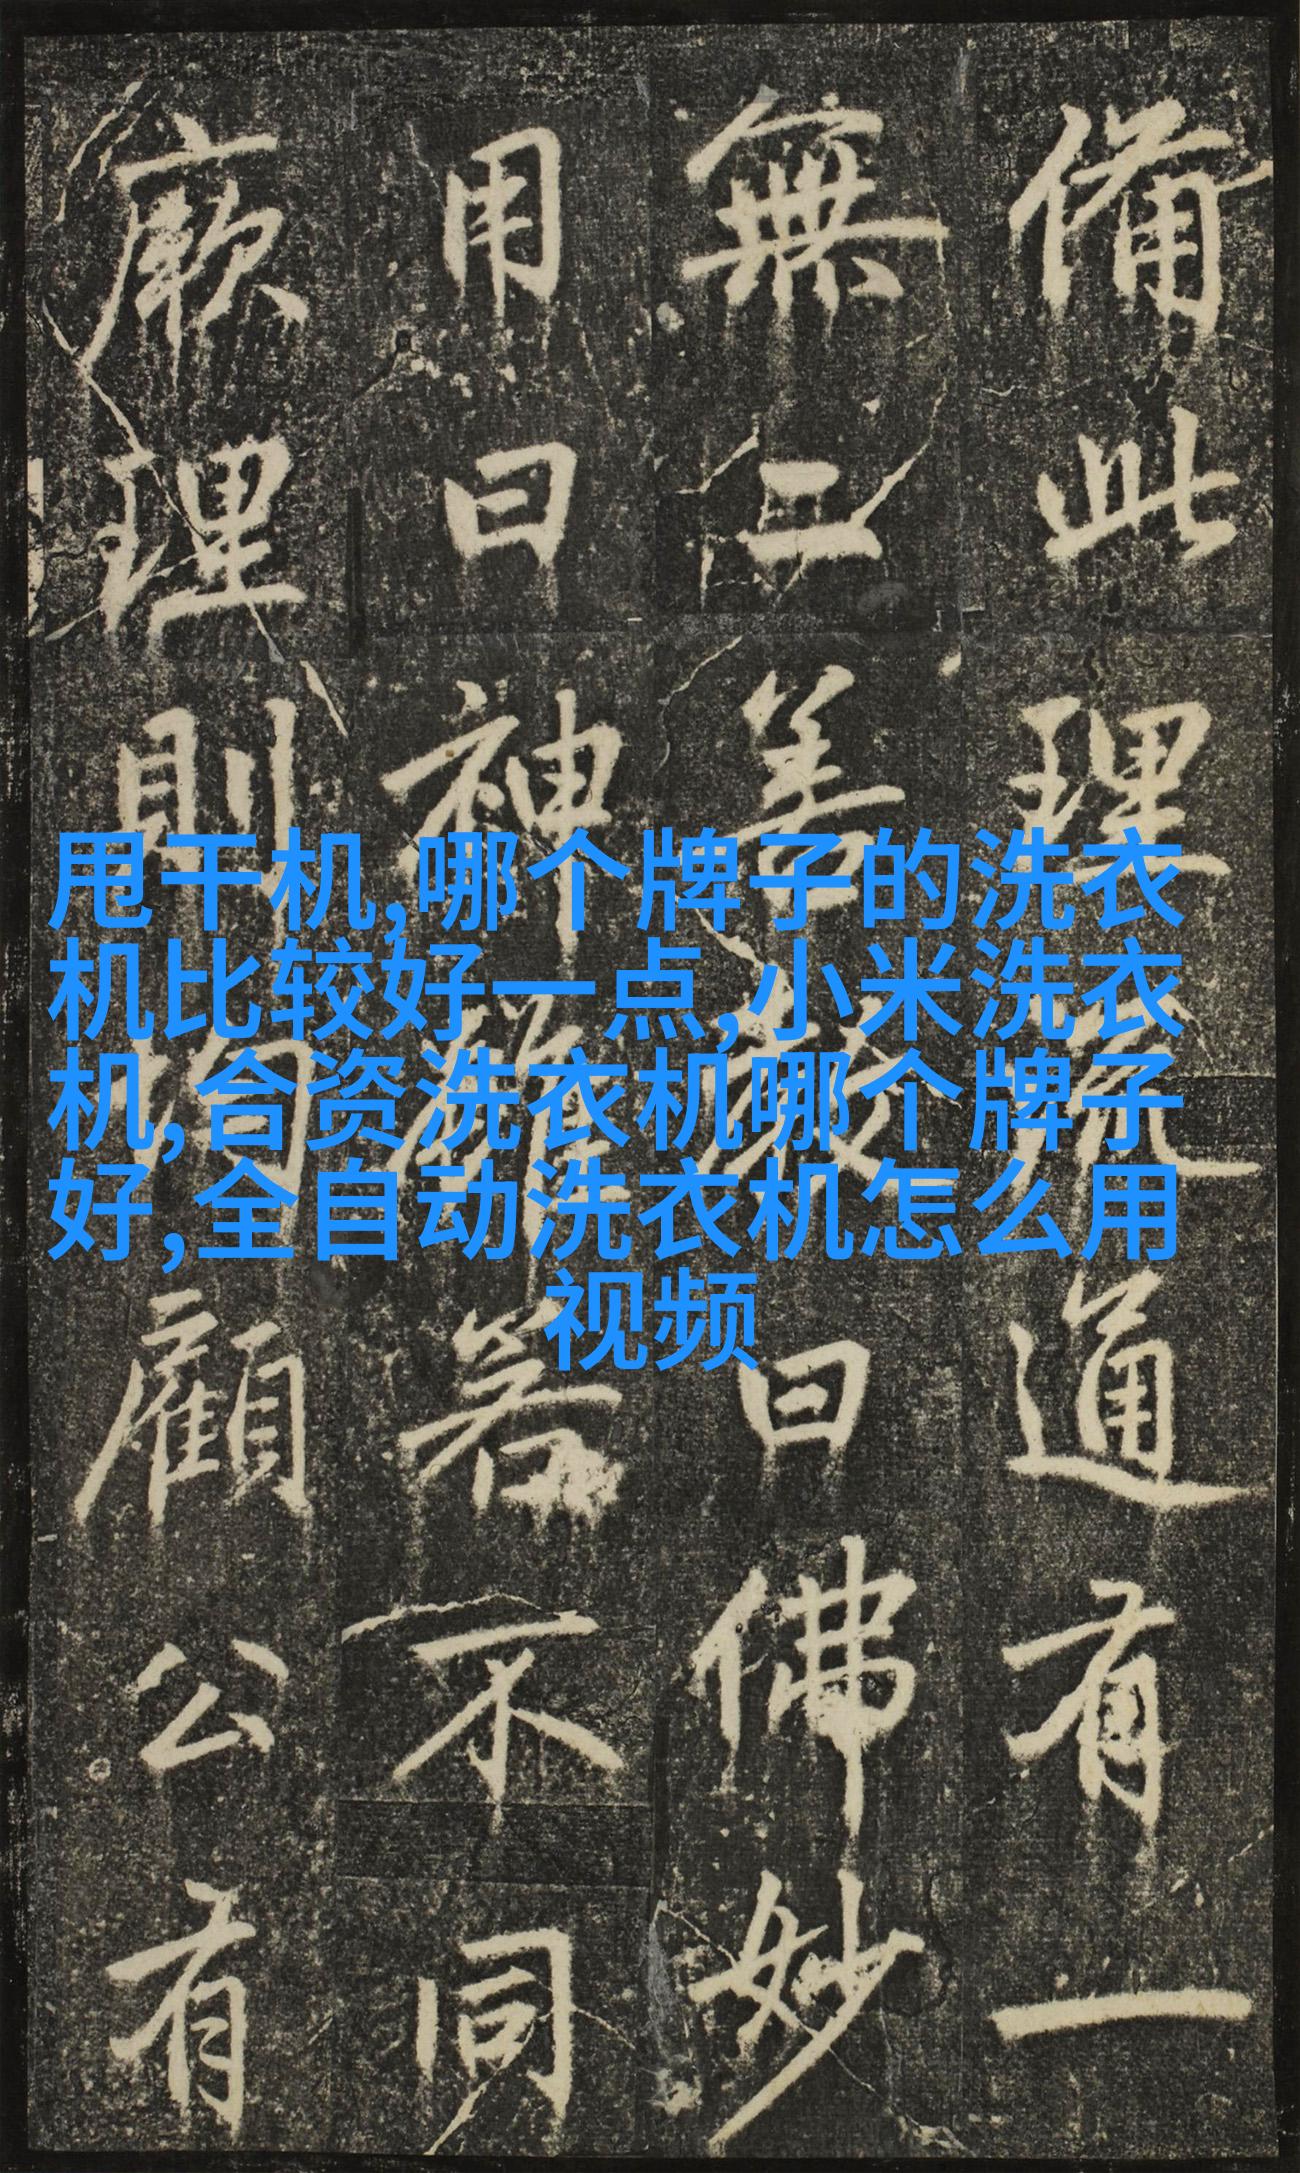 備此理通有一
無二善曰佛妙
用曰神雖若不同
厥理則均顧公有
甩干机,哪个牌子的洗衣
机比较好一点,小米洗衣
机,合资洗衣机哪个牌子
好,全自动洗衣机怎么用
视频